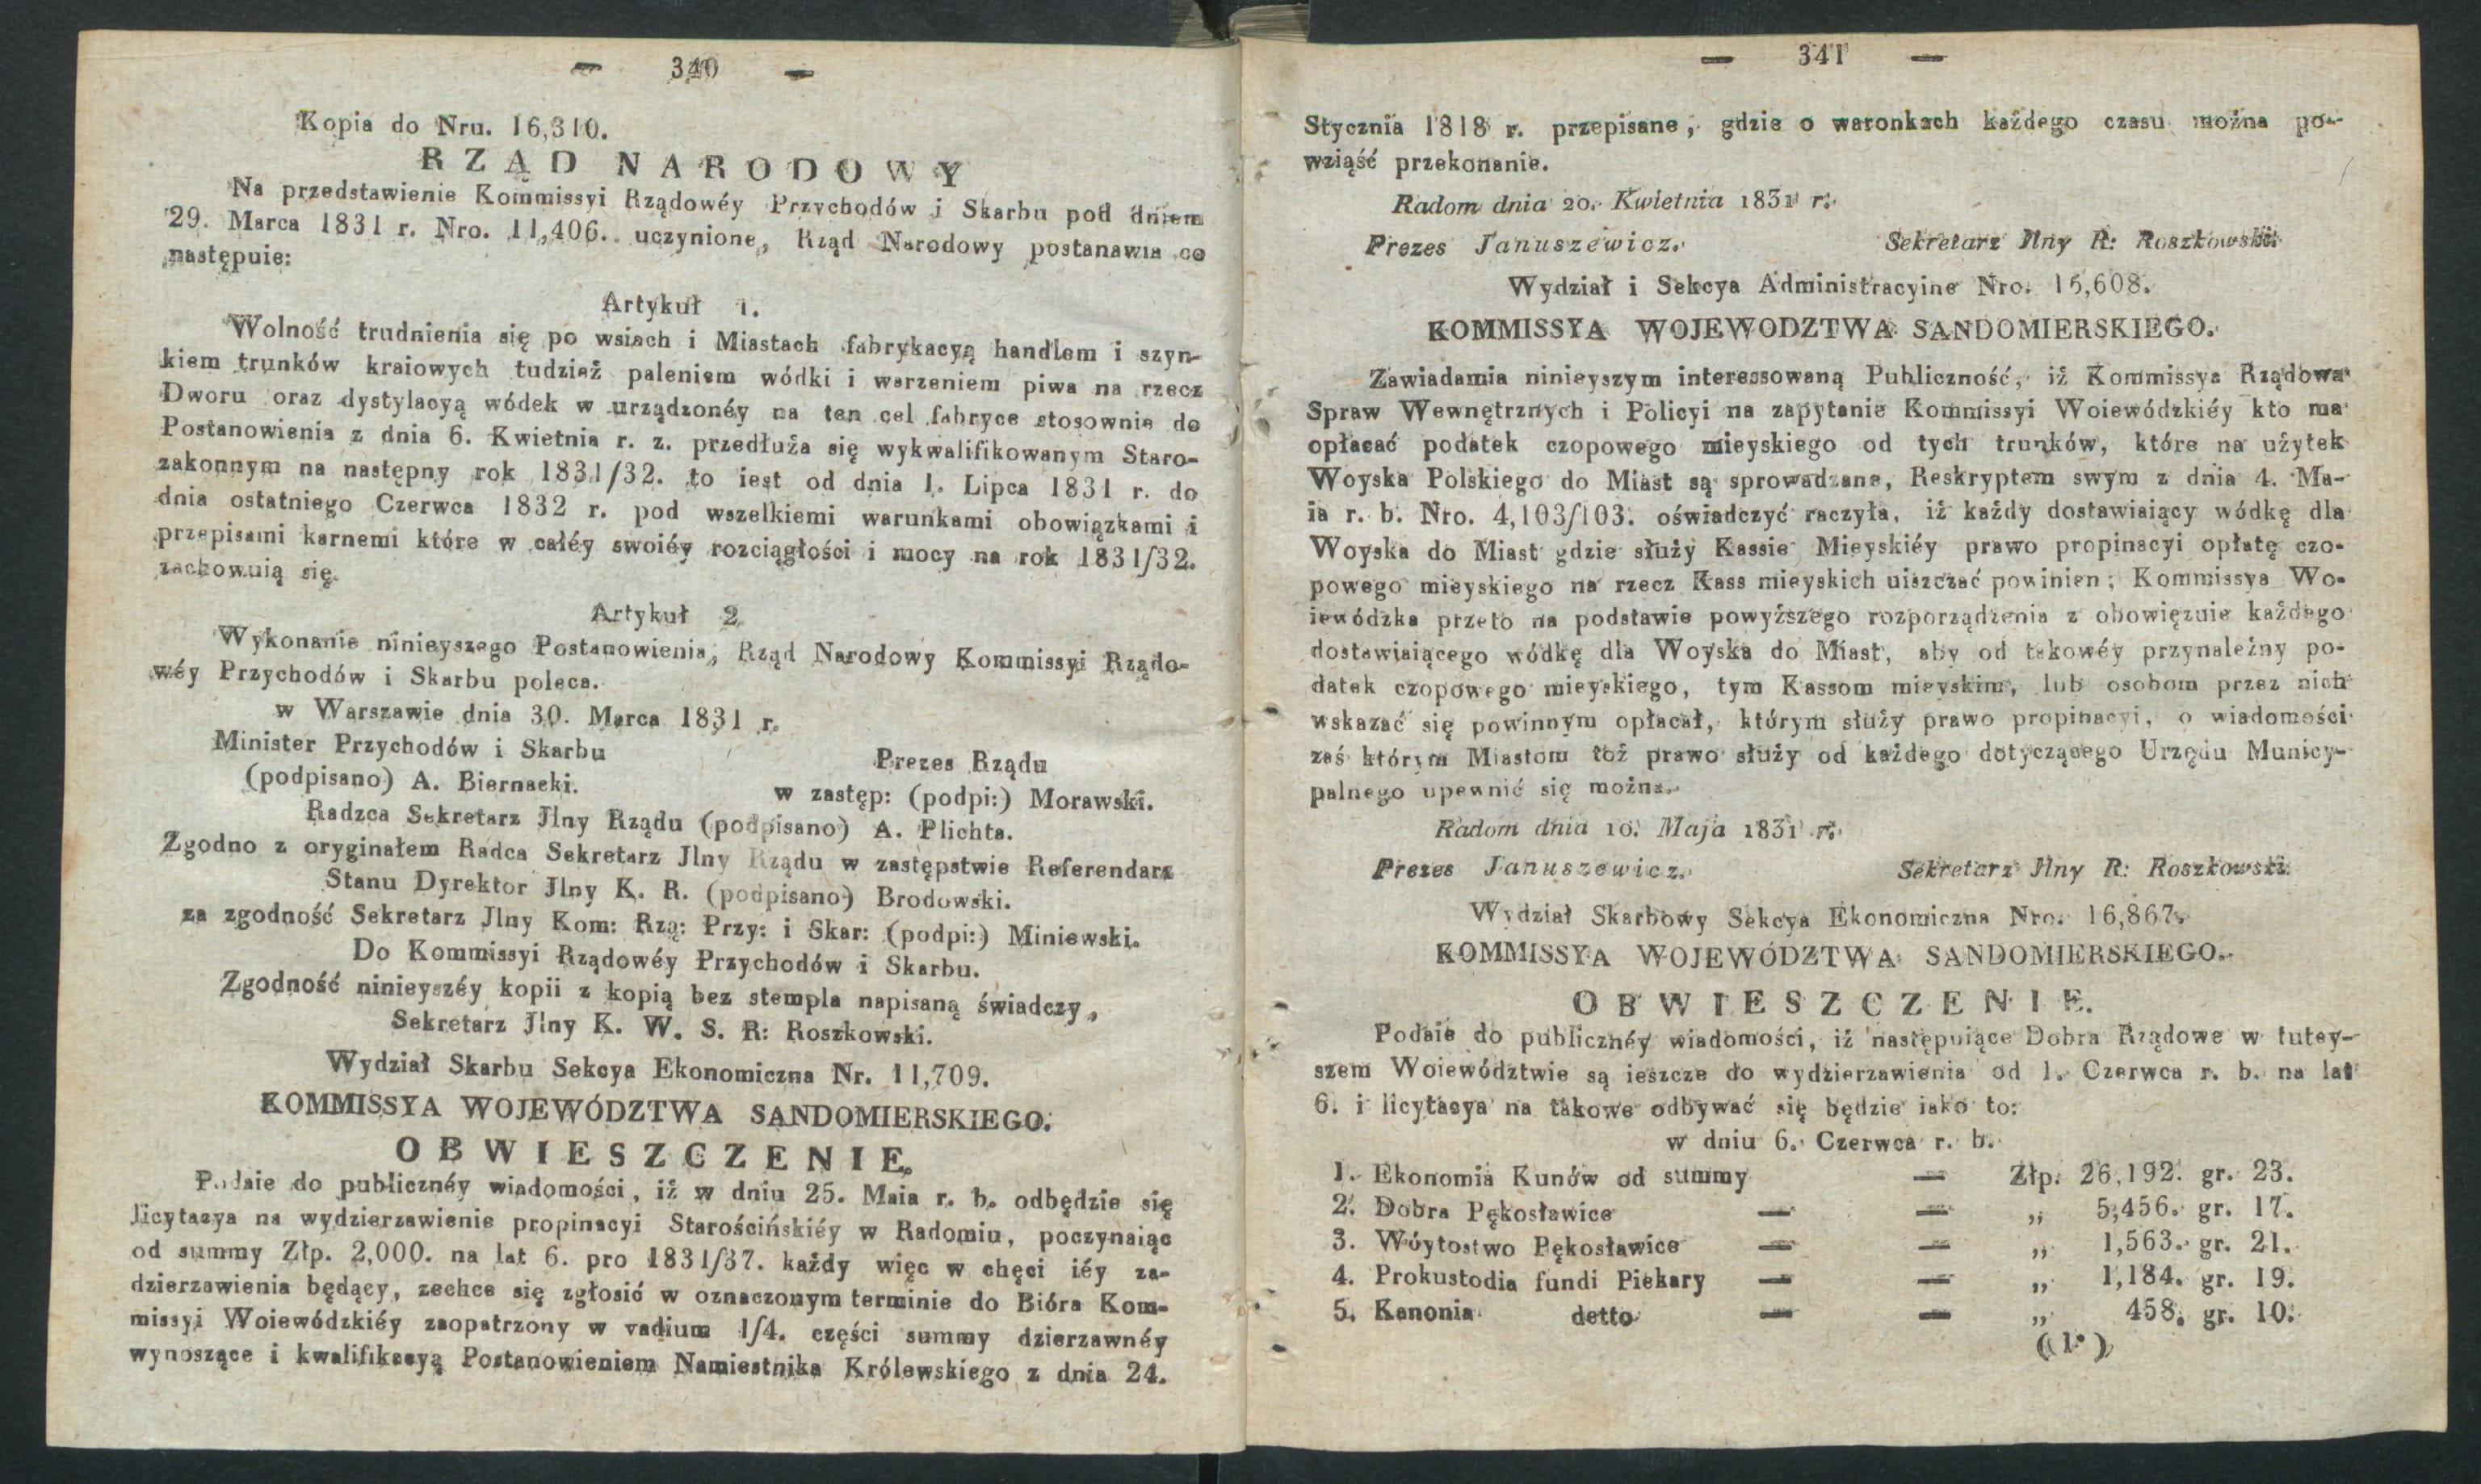 — 340 —
Kopia do Nru. 16,310.
RZĄD NARODOWY
Na przedstawienie Kommissyi Rządowéy Przychodów i Skarbu pod dniem
29. Marca 1831 r. Nro. 11,406. uczynione, Rząd Narodowy postanawia co
następuie:
Artykuł 1.
Wolność trudnienia się po wsiach i Miastach fabrykacyą handlem i szyn-
kiem trunków kraiowych tudzież paleniem wódki i warzeniem piwa na rzecz
Dworu oraz dystylacyą wódek w urządzonéy na ten cel fabryce stosownie do
Postanowienia z dnia 6. Kwietnia r. z. przedłuża się wykwalifikowanym Staro-
zakonnym na następny rok 1831/32. to iest od dnia 1. Lipca 1831 r. do
dnia ostatniego Czerwca 1832 r. pod wszelkiemi warunkami obowiązkami i
przepisami karnemi które w całéy swoiéy rozciągłości i mocy na rok 1831/32.
zachowuią się.
Artykuł 2
Wykonanie ninieyszego Postanowienia, Rząd Narodowy Kommissyi Rządo-
wéy Przychodów i Skarbu poleca.
w Warszawie dnia 30. Marca 1831 r.
Minister Przychodów i Skarbu
(podpisano) A. Biernacki.
Prezes Rządu
w zastęp: (podpi:) Morawski.
Radzca Sekretarz Jlny Rządu (podpisano) A. Plichta.
Zgodno z oryginałem Radca Sekretarz Jlny Rządu w zastępstwie Referendarz
Stanu Dyrektor Jlny K. R. (podpisano) Brodowski.
za zgodność Sekretarz Jlny Kom: Rzą: Przy: i Skar: (podpi:) Miniewski.
Do Kommissyi Rządowéy Przychodów i Skarbu.
Zgodność ninieyszéy kopii z kopią bez stempla napisaną świadczy,
Sekretarz Jlny K. W. S. R: Roszkowski.
Wydział Skarbu Sekcya Ekonomiczna Nr. 11,709.
KOMMISSYA WOJEWÓDZTWA SANDOMIERSKIEGO.
OBWIESZCZENIE.
Podaie do publicznéy wiadomości, iż w dniu 25. Maia r. b. odbędzie się
licytacya na wydzierzawienie propinacyi Starościńskiéy w Radomiu, poczynaiąc
od summy Złp. 2,000. na lat 6. pro 1831/37. każdy więc w chęci iéy za-
dzierzawienia będący, zechce się zgłosić w oznaczonym terminie do Bióra Kom-
missyi Woiewódzkiéy zaopatrzony w vadium 1/4. części summy dzierzawnéy
wynoszące i kwalifikacyą Postanowieniem Namiestnika Królewskiego z dnia 24.
— 341 —
Stycznia 1818 r. przepisane, gdzie o waronkach każdego czasu można po-
wziąść przekonanie.
Radom dnia 20. Kwietnia 1831 r.
Prezes Januszewicz. Sekretarz Jlny R: Roszkowski.
Wydział i Sekcya Administracyine Nro. 15,608.
KOMMISSYA WOJEWODZTWA SANDOMIERSKIEGO.
Zawiadamia ninieyszym interessowaną Publiczność, iż Kommissya Rządowa
Spraw Wewnętrznych i Policyi na zapytanie Kommissyi Woiewódzkiéy kto ma
opłacać podatek czopowego mieyskiego od tych trunków, które na użytek
Woyska Polskiego do Miast są sprowadzane, Reskryptem swym z dnia 4. Ma-
ia r. b. Nro. 4,103/103. oświadczyć raczyła, iż każdy dostawiaiący wódkę dla
Woyska do Miast gdzie służy Kassie Mieyskiéy prawo propinacyi opłatę czo-
powego mieyskiego na rzecz Kass mieyskich uiszczać powinien; Kommissya Wo-
iewódzka przeto na podstawie powyższego rozporządzenia z obowięzuie każdego
dostawiaiącego wódkę dla Woyska do Miast, aby od takowéy przynależny po-
datek czopowego mieyskiego, tym Kassom mieyskim, lub osobom przez nich
wskazać się powinnym opłacał, którym służy prawo propinacyi, o wiadomości
zaś którym Miastom toż prawo służy od każdego dotyczącego Urzędu Municy-
palnego upewnić się można.
Radom dnia 10. Maja 1831 r.
Prezes Januszewicz. Sekretarz Jlny R: Roszkowski.
Wydział Skarbowy Sekcya Ekonomiczna Nro. 16,867.
KOMMISSYA WOJEWÓDZTWA SANDOMIERSKIEGO.
OBWIESZCZENIE.
Podaie do publicznéy wiadomości, iż następuiące Dobra Rządowe w tutey-
szem Woiewództwie są ieszcze do wydzierzawienia od 1. Czerwca r. b. na lat
6. i licytacya na takowe odbywać się będzie iako to:
w dniu 6. Czerwca r. b.
1. Ekonomia Kunów od summy — Złp. 26,192. gr. 23.
2. Dobra Pękosławice — — „ 5,456. gr. 17.
3. Wóytostwo Pękosławice — — „ 1,563. gr. 21.
4. Prokustodia fundi Piekary — — „ 1,184. gr. 19.
5. Kanonia detto — — „ 458. gr. 10.
(1*)